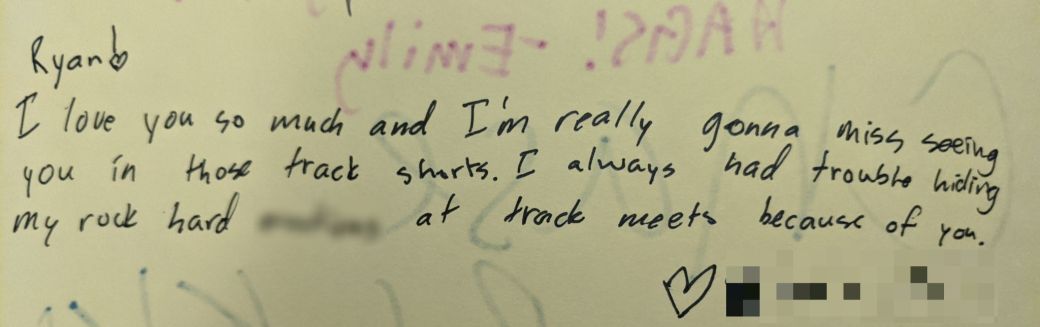 HAGS! -Emily
Ryan!
I love you so much and I'm really gonna miss seeing
you in those track shorts. I always had trouble hiding
my rock hard at track meets because of you.